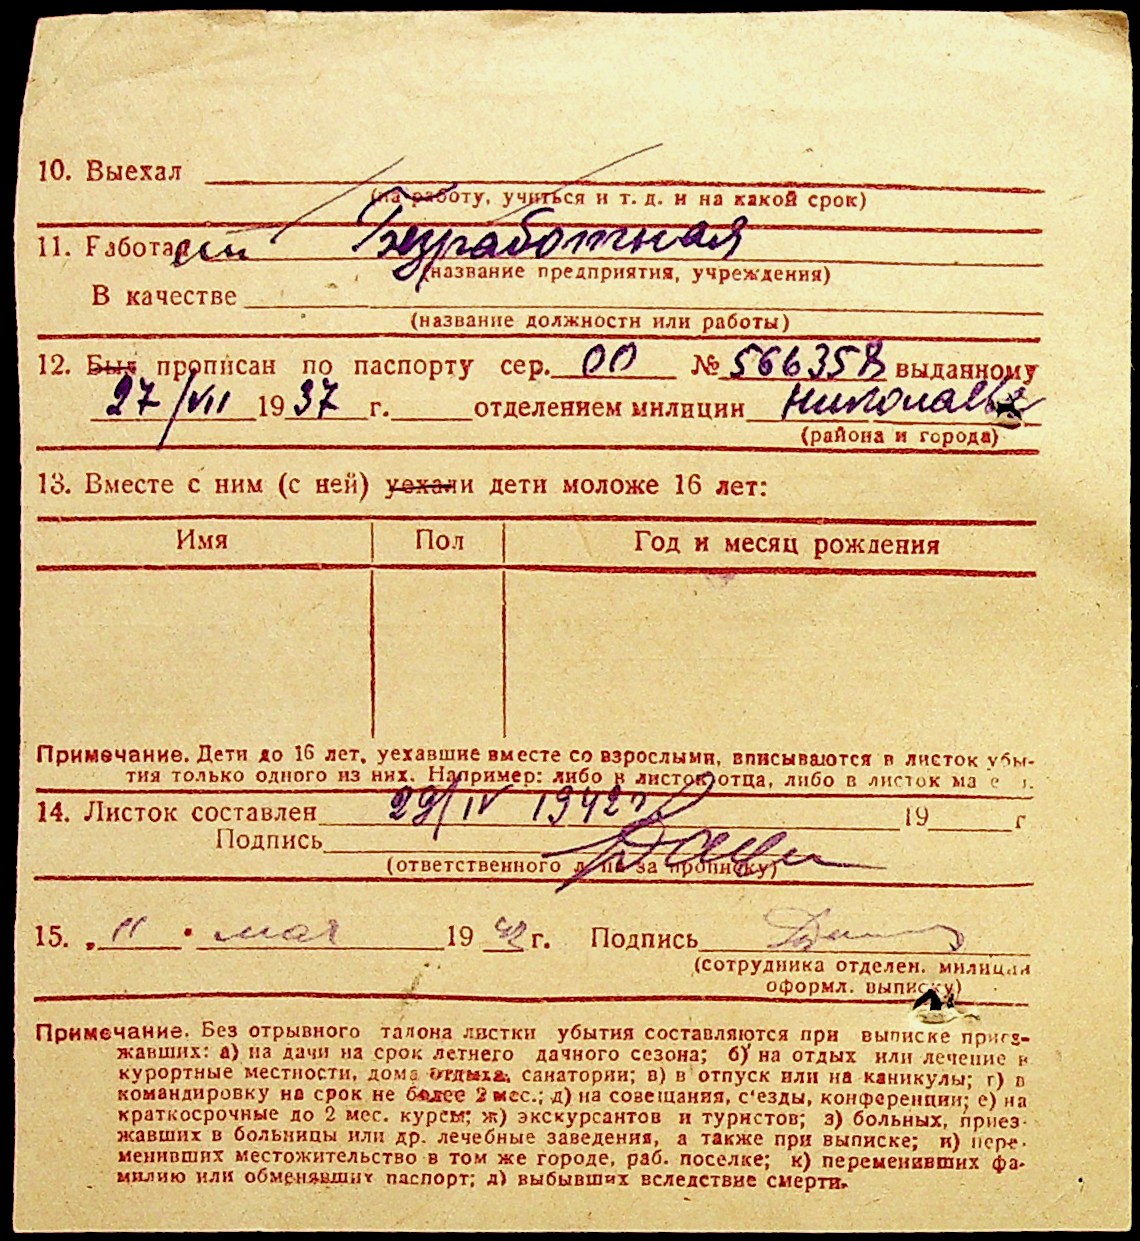 10. Выехал
(на работу, учиться и т. д. и на какой срок)
11. Работал Безработная
(название предприятия, учреждения)
В качестве
(название должности или работы)
12. Был прописан по паспорту сер. 00 № 566358 выданному
27/VII 1937 г. отделением милиции Николаев
(района и города)
13. Вместе с ним (с ней) уехали дети моложе 16 лет:
Имя Пол Год и месяц рождения
Примечание. Дети до 16 лет, уехавшие вместе со взрослыми, вписываются в листок убы-
тия только одного из них. Например: либо в листок отца, либо в листок ма
14. Листок составлен 29/IV 1942 г 19 г
Подпись
(ответственного за прописку)
15. „11" мая 1942 г. Подпись
(сотрудника отделен. милиции
оформл. выписку)
Примечание. Без отрывного талона листки убытия составляются при выписке приез-
жавших: а) на дачи на срок летнего дачного сезона; б) на отдых или лечение в
курортные местности, дома отдыха, санатории; в) в отпуск или на каникулы; г) в
командировку на срок не более 2 мес.; д) на совещания, с'езды, конференции; е) на
краткосрочные до 2 мес. курсы; ж) экскурсантов и туристов; з) больных, приез-
жавших в больницы или др. лечебные заведения, а также при выписке; и) пере-
менивших местожительство в том же городе, раб. поселке; к) переменивших фа-
милию или обменявших паспорт; л) выбывших вследствие смерти.